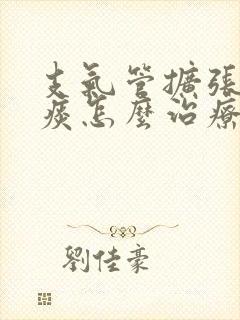 支氣管擴張
痰怎麼治療
劉佳豪